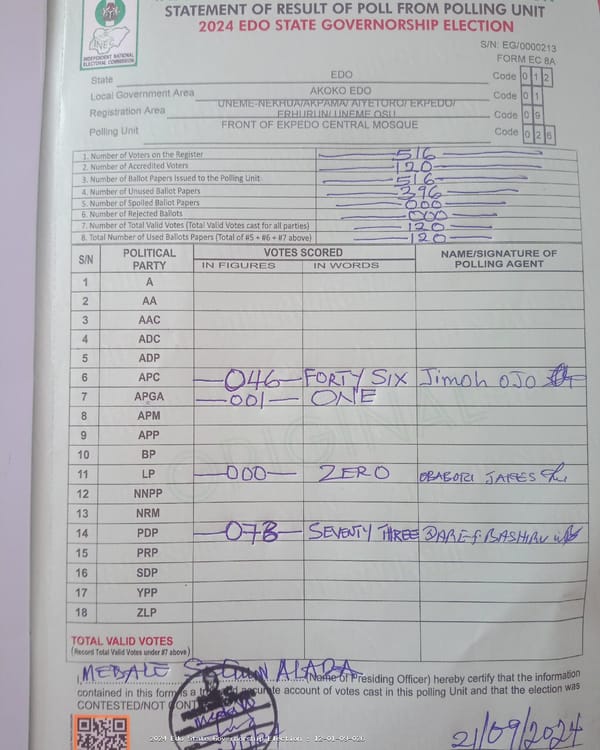 STATEMENT OF RESULT OF POLL FROM POLLING UNIT
2024 EDO STATE GOVERNORSHIP ELECTION
INEC
INDEPENDENT NATIONAL
ELECTORAL COMMISSION
S/N: EG/0000213
FORM EC 8A
State EDO Code 0 1 2
Local Government Area AKOKO EDO Code 0 1
Registration Area UNEME-NEKHUA/AKPAMA/ AIYETORO/ EKPEDO/ ERHURUN/ UNEME OSU Code 0 9
Polling Unit FRONT OF EKPEDO CENTRAL MOSQUE Code 0 2 6
1. Number of Voters on the Register 516
2. Number of Accredited Voters 120
3. Number of Ballot Papers Issued to the Polling Unit 516
4. Number of Unused Ballot Papers 396
5. Number of Spoiled Ballot Papers 000
6. Number of Rejected Ballots 000
7. Number of Total Valid Votes (Total Valid Votes cast for all parties) 120
8. Total Number of Used Ballots Papers (Total of #5 + #6 + #7 above) 120
S/N POLITICAL PARTY VOTES SCORED NAME/SIGNATURE OF POLLING AGENT
IN FIGURES IN WORDS
1 A
2 AA
3 AAC
4 ADC
5 ADP
6 APC 046 FORTY SIX Jimoh OJO
7 APGA 001 ONE
8 APM
9 APP
10 BP
11 LP 000 ZERO
12 NNPP
13 NRM
14 PDP 073 SEVENTY THREE BASHIRU
15 PRP
16 SDP
17 YPP
18 ZLP
ORIGINAL
TOTAL VALID VOTES
(Record Total Valid Votes under #7 above)
I, (Name of Presiding Officer) hereby certify that the information
contained in this form is a true and accurate account of votes cast in this polling Unit and that the election was
CONTESTED/NOT CONT
21/09/2024
2024 Edo State Governorship Election - 12-01-09-026